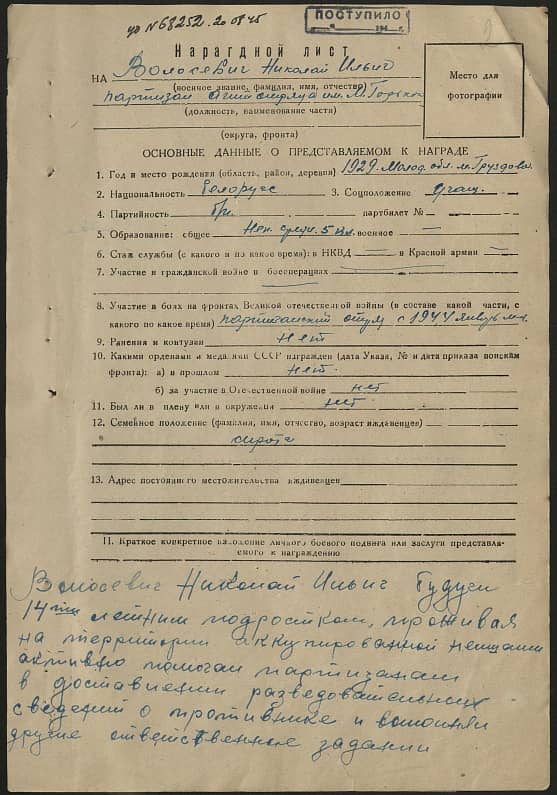 № 68252. 20 08 45
ПОСТУПИЛО
2
Нарагдной лист
НА Волосевич Николай Ильич
(военное звание, фамилия, имя, отчество)
партизан им. М. Горького
(должность, наименование части)
(округа, фронта)
Место для
фотографии
ОСНОВНЫЕ ДАННЫЕ О ПРЕДСТАВЛЯЕМОМ К НАГРАДЕ
1. Год и место рождения (область, район, деревня) 1929. Молод. обл. м. Груздово
2. Национальность белорус 3. Соцположение учащ.
4. Партийность б/п. партбилет № —
5. Образование: общее Неп. средн. 5 кл. военное —
6. Стаж службы (с какого и по какое время): в НКВД — в Красной армии —
7. Участие в гражданской войне в боеоперациях —
8. Участие в боях на фронтах Великой отечественной войны (в составе какой части, с
какого по какое время) с 1944
9. Ранения и контузии нет
10. Какими орденами и медалями СССР награжден (дата Указа, № и дата приказа войскам
фронта): а) в прошлом нет.
б) за участие в Отечественной войне нет
11. Был ли в плену или в окружении нет
12. Семейное положение (фамилия, имя, отчество, возраст иждивенцев)
сирота
13. Адрес постоянного местожительства иждивенцев
11. Краткое конкретное изложение личного боевого подвига или заслуги представляе-
мого к награждению
Волосевич Николай Ильич будучи
14тим летним подростком, проживая
на территории аккупированной немцами
активно помогал партизанам
в доставлении разведовательных
сведений о противнике и выполнял
другие ответственные задании